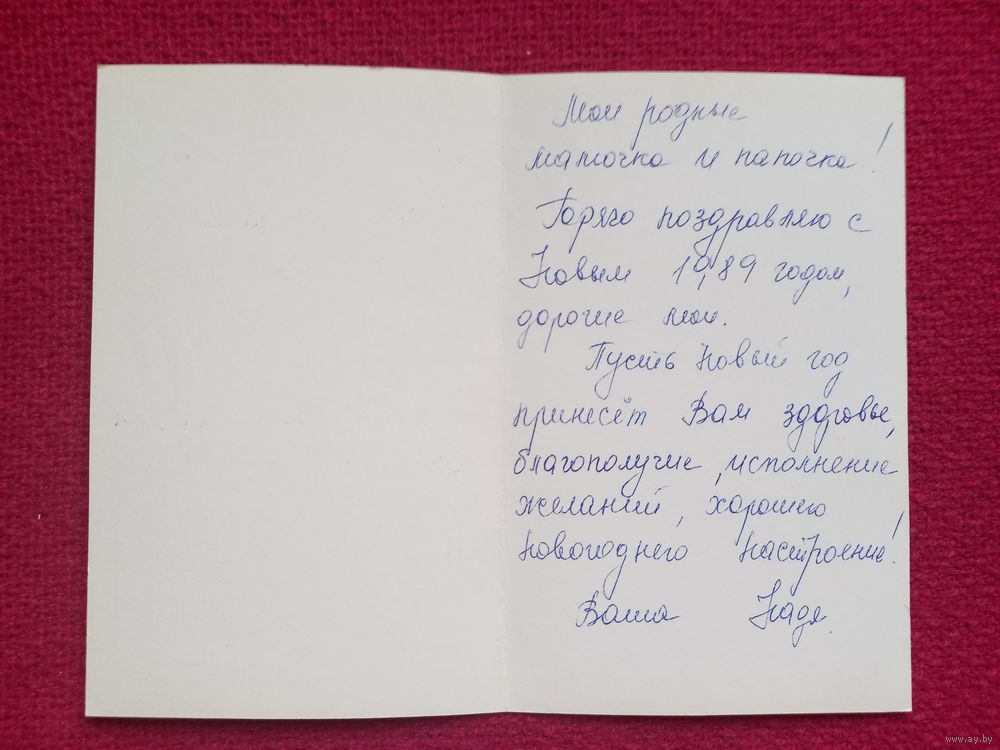 Мои родные
маточка и папочка!
Горячо поздравляю с
Новым 1989 годом,
дорогие мои.
Пусть Новый год
принесёт Вам здоровье,
благополучие, исполнение
желаний, хорошего
новогоднего настроение!
Ваша Надя.
www.ay.by